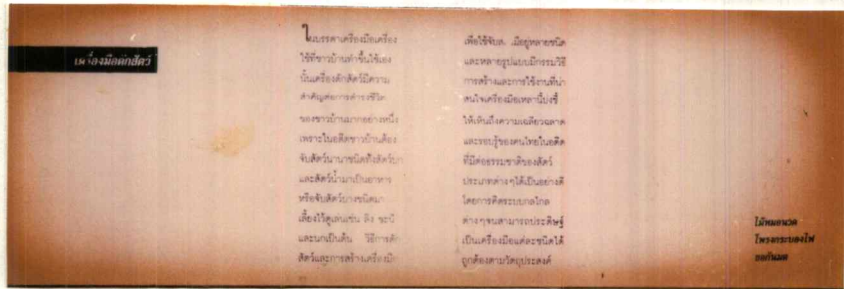 เครื่องมือดักสัตว์
ในบรรดาเครื่องมือเครื่อง
ใช้ที่ชาวบ้านทำขึ้นใช้เอง
นั้นเครื่องดักสัตว์มีความ
สำคัญต่อการดำรงชีวิต
ของชาวบ้านมากอย่างหนึ่ง
เพราะในอดีตชาวบ้านต้อง
จับสัตว์นานาชนิดทั้งสัตว์บก
และสัตว์น้ำมาเป็นอาหาร
หรือจับสัตว์บางชนิดมา
เลี้ยงไว้ดูเล่นเช่น ลิง ชะนี
และนกเป็นต้น วิธีการดัก
สัตว์และการสร้างเครื่องมือ
เพื่อใช้จับส. มีอยู่หลายชนิด
และหลายรูปแบบมีกรรมวิธี
การสร้างและการใช้งานที่น่า
สนใจเครื่องมือเหล่านี้บ่งชี้
ให้เห็นถึงความเฉลียวฉลาด
และรอบรู้ของคนไทยในอดีต
ที่มีต่อธรรมชาติของสัตว์
ประเภทต่างๆได้เป็นอย่างดี
โดยการคิดระบบกลไกล
ต่างๆจนสามารถประดิษฐ์
เป็นเครื่องมือแต่ละชนิดได้
ถูกต้องตามวัตถุประสงค์
ไม้หมอนวด
โพรงกระบองไฟ
ขอกันมด